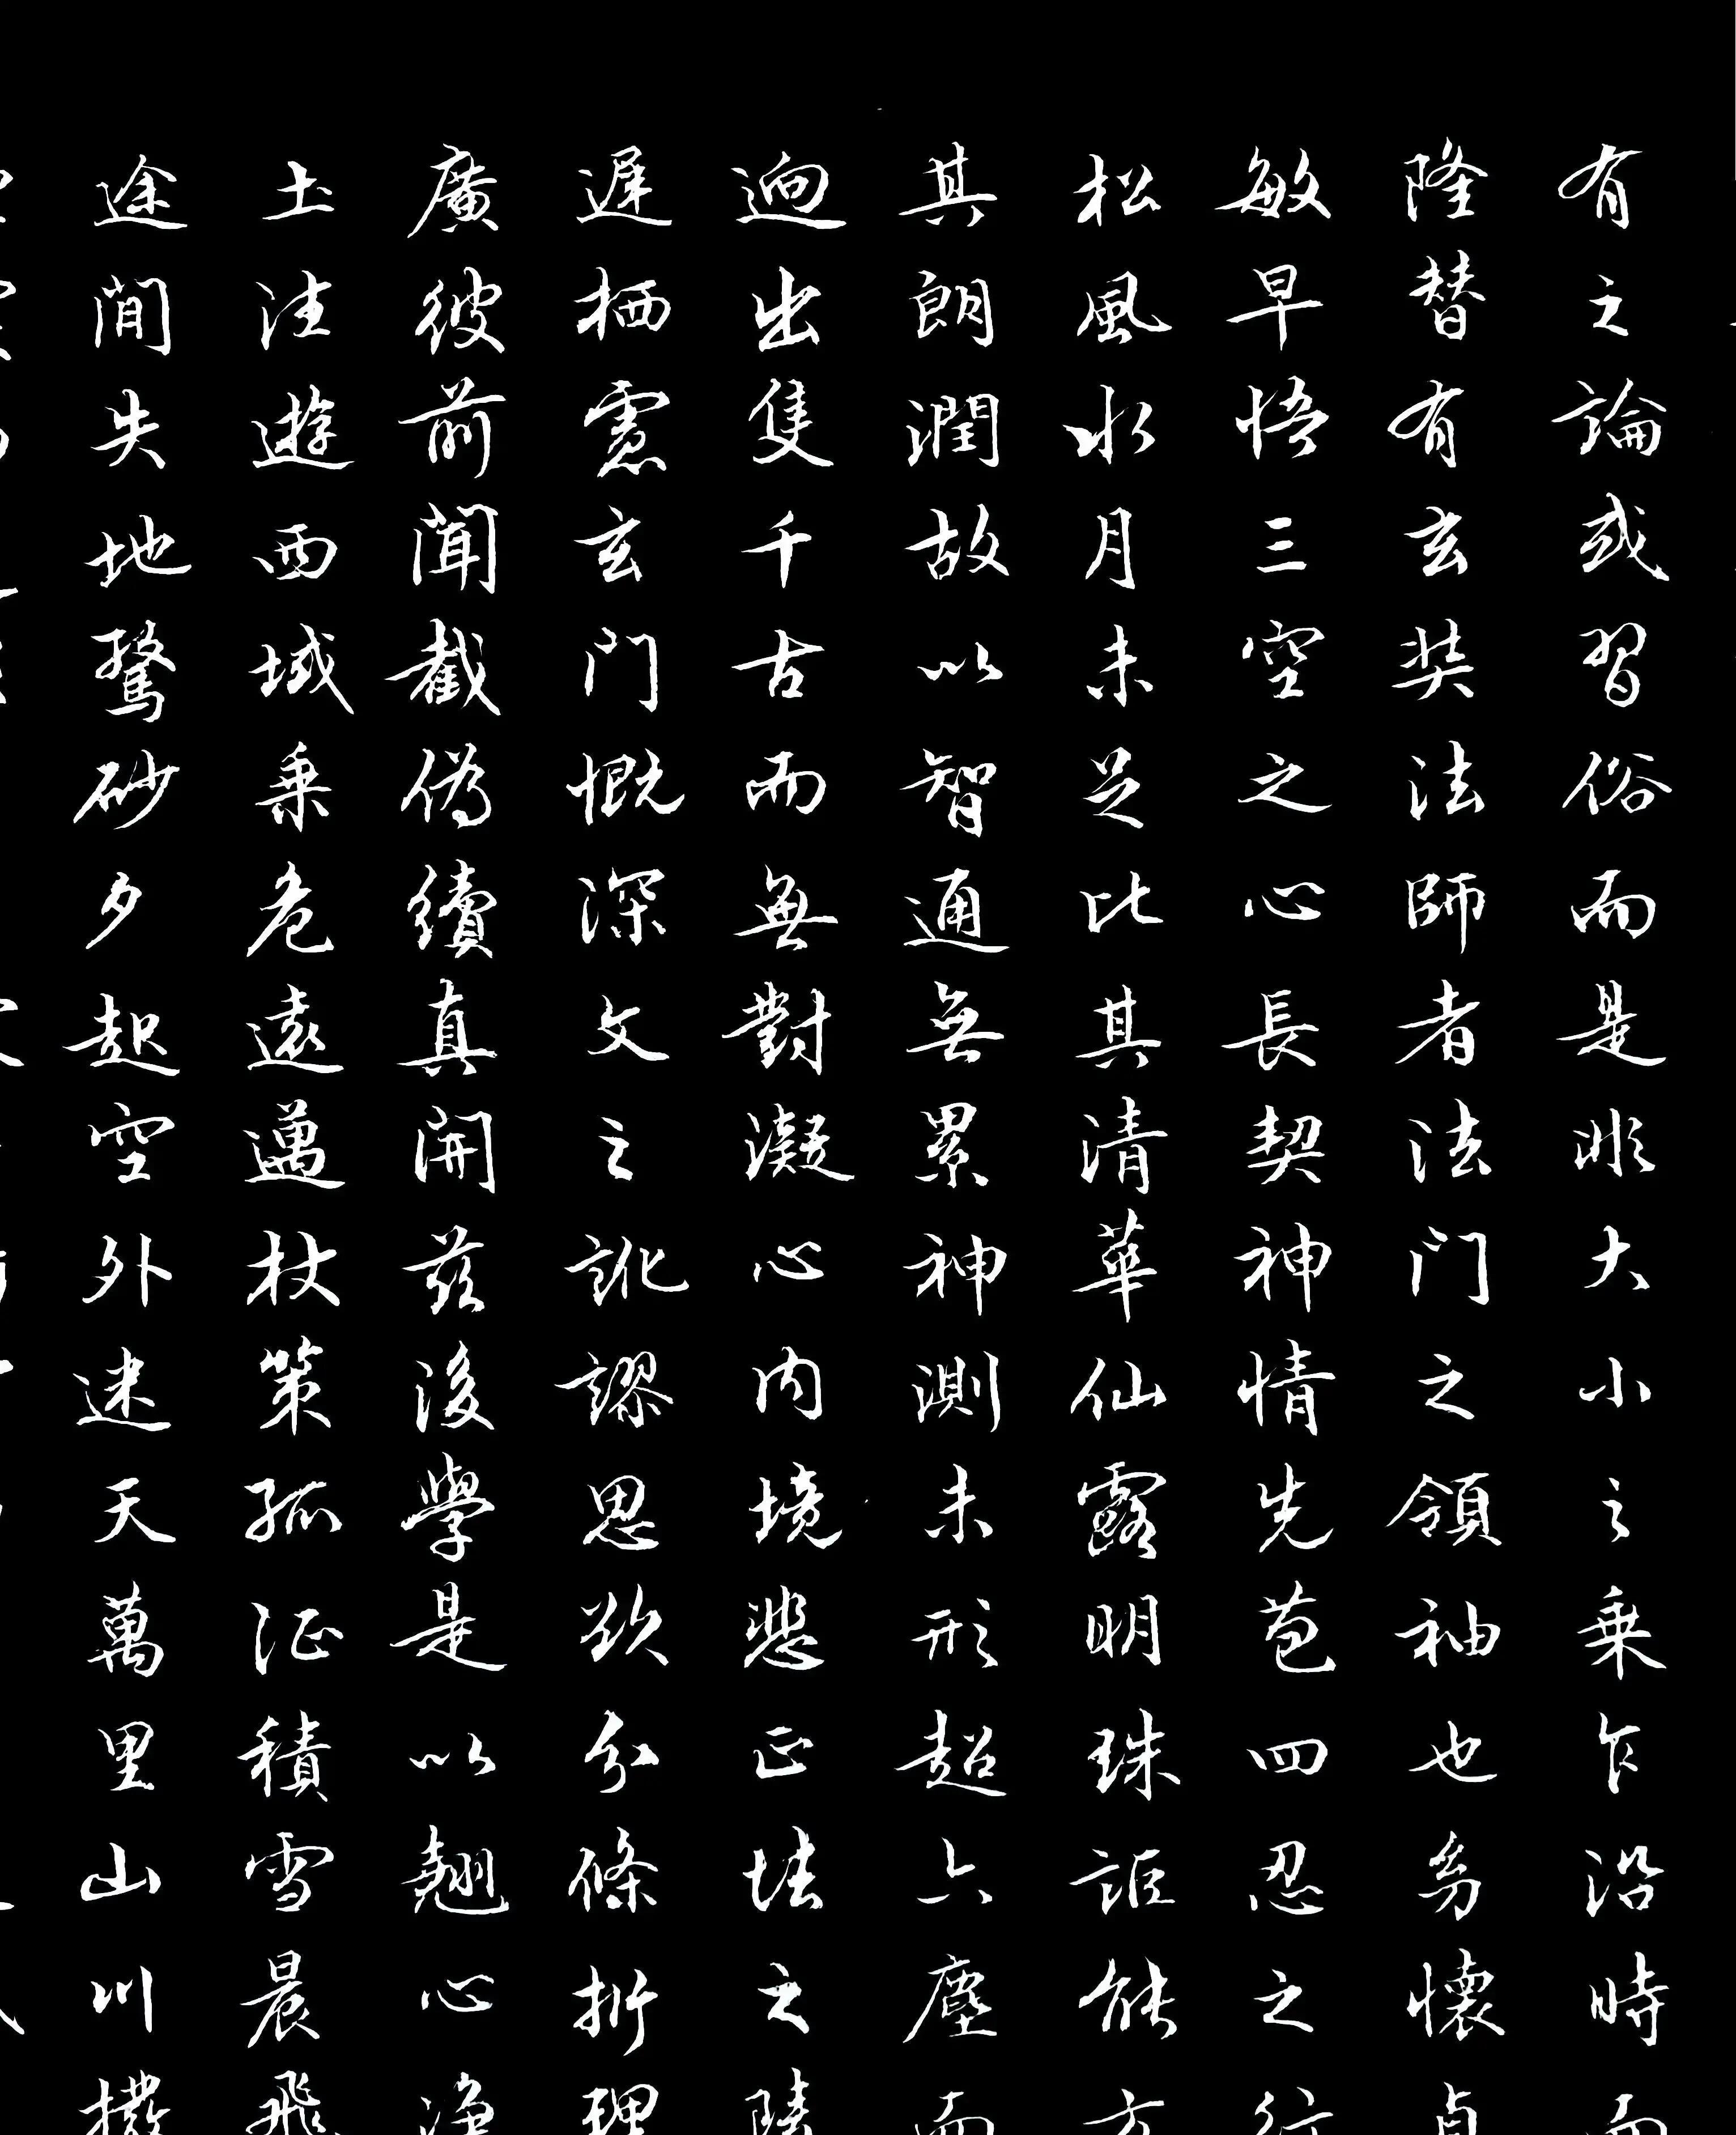 有之論或習俗而是非大小之乗乍沿時而
隆替有玄奘法師者法門之領袖也幼懷貞
敏早悟三空之心長契神情先苞四忍之行
松風水月未足比其清華仙露明珠詎能方
其朗潤故以智通無累神測未形超六塵而
迥出隻千古而無對凝心內境悲正法之陵
遲栖慮玄門慨深文之訛謬思欲分條析理
廣彼前聞截偽續真開茲後學是以翹心淨
土往遊西域乗危遠邁杖策孤征積雪晨飛
途間失地驚砂夕起空外迷天萬里山川撥